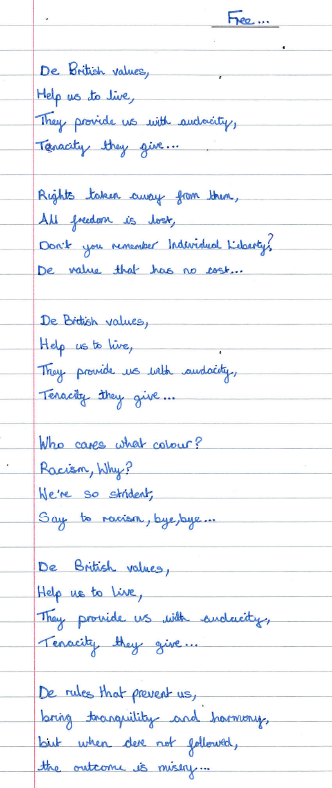 Free...
De British values,
Help us to live,
They provide us with audacity,
Tenacity they give...
Rights taken away from them,
All freedom is lost,
Don't you remember Individual Liberty?
De value that has no cost...
De British values,
Help us to live,
They provide us with audacity,
Tenacity they give...
Who cares what colour?
Racism, Why?
We're so strident,
Say to racism, bye, bye...
De British values,
Help us to Live,
They provide us with audacity,
Tenacity they give...
De rules that prevent us,
bring tranquility and harmony,
but when dere not followed,
the outcome is misery...